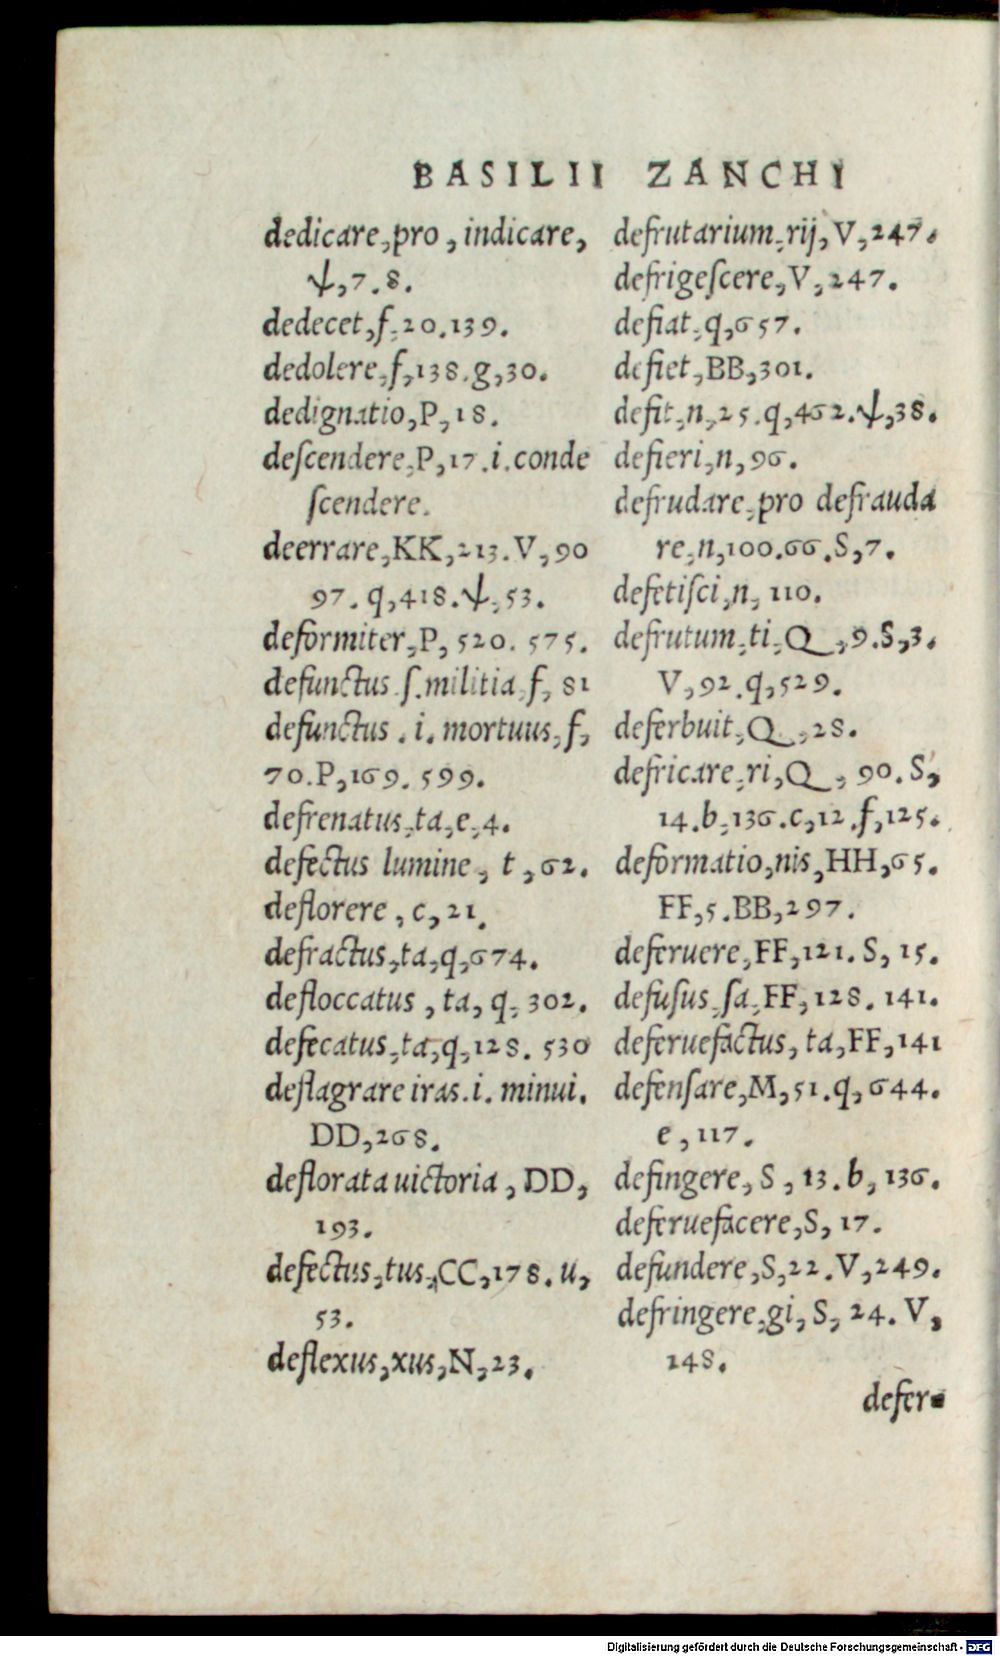 BASILII ZANCHI
dedicare,pro , indicare,
ψ,7.8.
dedecet,f,20.139.
dedolere,f,138.g,30.
dedignatio,P,18.
deſcendere,P,17.i.conde
ſcendere.
deerrare,KK,213.V,90
97. q,418.ψ,53.
deformiter,P, 520. 575.
defunctus ſ.militia,f, 81
defunctus . i. mortuus,f,
70.P,169. 599.
defrenatus,ta,e,4.
defectus lumine, t ,62.
deflorere , c, 21.
defractus,ta,q,674.
defloccatus , ta, q, 302.
defecatus,ta,q,128. 530
deflagrare iras.i. minui.
DD,268.
deflorata uictoria , DD,
193.
defectus,tus,CC,178. u,
53.
deflexus,xus,N,23.
defrutarium,rij,V,247.
defrigeſcere,V,247.
defiat,q,657.
defiet,BB,301.
defit,n,25.q,462.ψ,38.
defieri,n,96.
defrudare,pro defrauda
re,n,100.66.S,7.
defetiſci,n, 110.
defrutum,ti,Q,9.S,3.
V,92.q,529.
deferbuit,Q,28.
defricare,ri,Q, 90. S,
14.b,136.c,12.f,125.
deformatio,nis,HH,65.
FF,5.BB,297.
deferuere,FF,121. S, 15.
defuſus,ſa,FF,128. 141.
deferuefactus, ta,FF,141
defenſare,M,51.q,644.
e,117.
defingere, S , 13.b, 136.
deferuefacere,S, 17.
defundere,S,22.V,249.
defringere,gi, S, 24. V,
148.
defer-
Digitalisierung gefördert durch die Deutsche Forschungsgemeinschaft - DFG